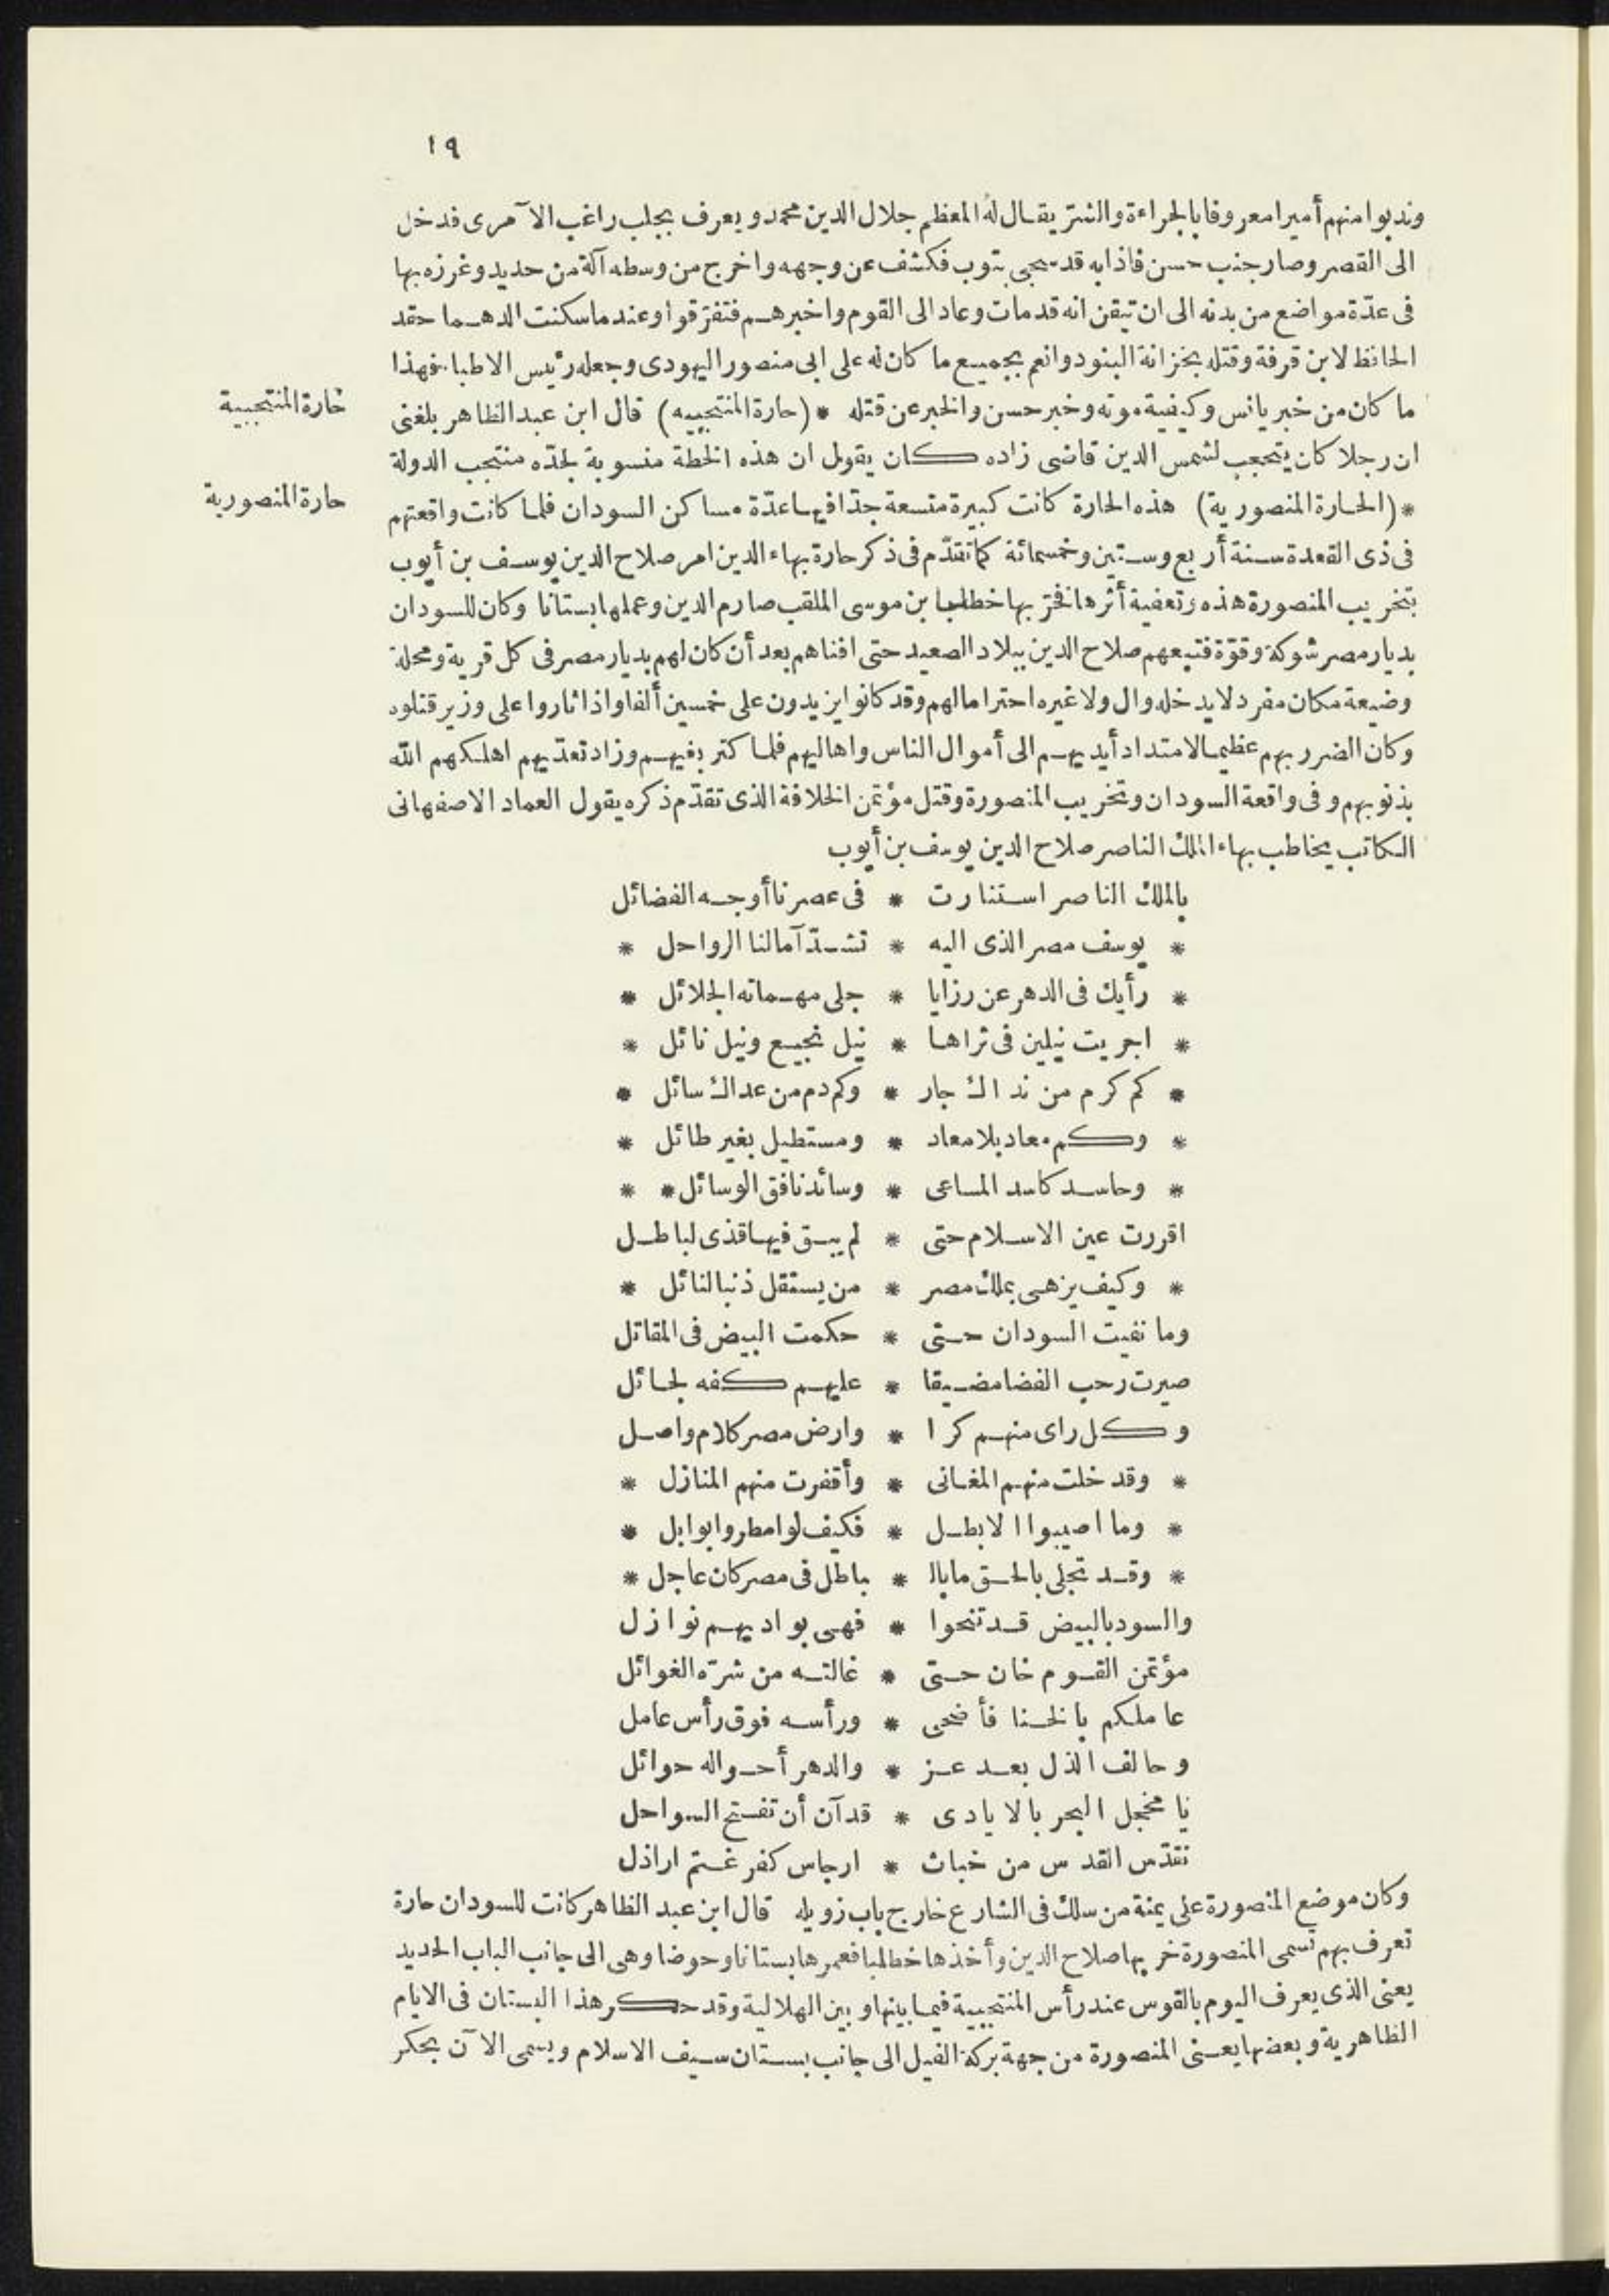 ١٩
وندبوا منهم أميرا معروفا بالجراءة والشرّ يقال له المعظم جلال الدين محمد ويعرف بجلب راغب الآمرى فدخل
الى القصر وصار جنب حسن فاذا به قد سجى بثوب فكشف عن وجهه واخرج من وسطه آلة من حديد وغرزه بها
فى عدّة مواضع من بدنه الى ان تيقن انه قد مات وعاد الى القوم واخبرهم فتفرّقوا وعند ما سكنت الدهما حقد
الحافظ لابن قرفة وقتله بخزانة البنود وانعم بجميع ما كان له على ابى منصور اليهودى وجعله رئيس الاطبا فهذا
ما كان من خبر يانس وكيفية موته وخبر حسن والخبر عن قتله * (حارة المنتجبيه) قال ابن عبد الظاهر بلغنى
حارة المنتجبية
ان رجلا كان يتحجب لشمس الدين قاضى زاده كان يقول ان هذه الخطة منسوبة لجدّه منتجب الدولة
* (الحارة المنصورية) هذه الحارة كانت كبيرة متسعة جدّا فيها عدّة مساكن السودان فلما كانت واقعتهم
حارة المنصورية
فى ذى القعدة سنة أربع وستين وخمسمائة كما تقدّم فى ذكر حارة بهاء الدين امر صلاح الدين يوسف بن أيوب
بتخريب المنصورة هذه وتعفية أثرها فخرّ بها خطلبا بن موسى الملقب صارم الدين وعملها بستانا وكان للسودان
بديار مصر شوكة وقوّة فتتبعهم صلاح الدين ببلاد الصعيد حتى افناهم بعد أن كان لهم بديار مصر فى كل قرية ومحلة
وضيعة مكان مفرد لا يدخله وال ولا غيره احتراما لهم وقد كانوا يزيدون على خمسين ألفا واذا ثاروا على وزير قتلوه
وكان الضرر بهم عظيما لامتداد أيديهم الى أموال الناس واهاليهم فلما كثر بغيهم وزاد تعدّيهم اهلكهم الله
بذنوبهم وفى واقعة السودان وتخريب المنصورة وقتل مؤتمن الخلافة الذى تقدّم ذكره يقول العماد الاصفهانى
الكاتب يخاطب بهاء الملك الناصر صلاح الدين يوسف بن أيوب
بالملك الناصر استنارت * فى عصرنا أوجه الفضائل
* يوسف مصر الذى اليه * تشدّ آمالنا الرواحل *
* رأيك فى الدهر عن رزايا * جلى مهماته الجلائل *
* اجريت نيلين فى ثراها * نيل نجيع ونيل نائل *
* كم كرم من نداك جار * وكم دم من عداك سائل *
* وكم معاد بلا معاد * ومستطيل بغير طائل *
* وحاسد كاسد المساعى * وسائد نافق الوسائل * *
اقررت عين الاسلام حتى * لم يبق فيها قذى لباطل
* وكيف يزهى بملك مصر * من يستقل ذنبا لنائل *
وما نفيت السودان حتى * حكمت البيض فى المقاتل
صيرت رحب الفضا مضيقا * عليهم كفه لحائل
وكل راى منهم كرا * وارض مصر كلام واصل
* وقد خلت منهم المغانى * وأقفرت منهم المنازل *
* وما اصيبوا الا بطل * فكيف لو امطروا بوابل *
* وقد تجلى بالحق ما بال * باطل فى مصر كان عاجل *
والسود بالبيض قد تنحوا * فهى بواديهم نوازل
مؤتمن القوم خان حتى * غالته من شرّه الغوائل
عاملكم بالخنا فأضحى * ورأسه فوق رأس عامل
وحالف الذل بعد عز * والدهر أحواله حوائل
يا مخجل البحر بالايادى * قد آن أن تفتح السواحل
نقدّس القدس من خباث * ارجاس كفر غتم اراذل
وكان موضع المنصورة على يمنة من سلك فى الشارع خارج باب زويله قال ابن عبد الظاهر كانت للسودان حارة
تعرف بهم تسمى المنصورة خرّبها صلاح الدين وأخذها خطلبا فعمرها بستانا وحوضا وهى الى جانب الباب الحديد
يعنى الذى يعرف اليوم بالقوس عند رأس المنتجبية فيما بينها وبين الهلالية وقد حكر هذا البستان فى الايام
الظاهرية وبعضها يعنى المنصورة من جهة بركة الفيل الى جانب بستان سيف الاسلام ويسمى الآن بحكر